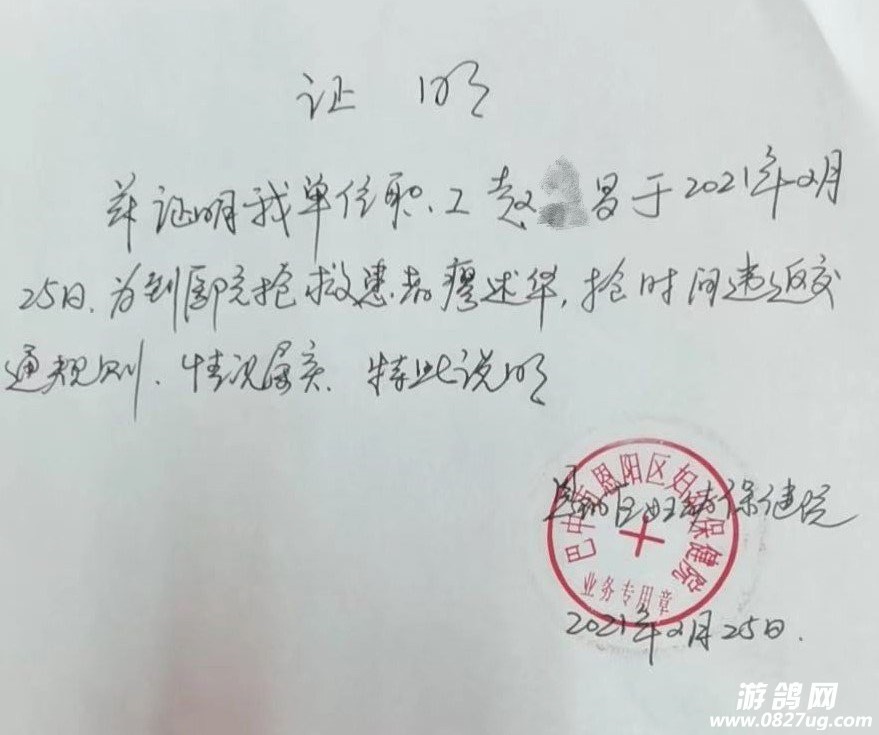 证 明
兹证明我单位职工赵 昌于2021年2月
25日.为到医院抢救患者廖述华,抢时间违返交
通规则.情况属实.特此说明
恩阳区妇幼保健院
巴中市恩阳区妇幼保健院
业务专用章
2021年2月25日.
游鸽网
www.0827ug.com